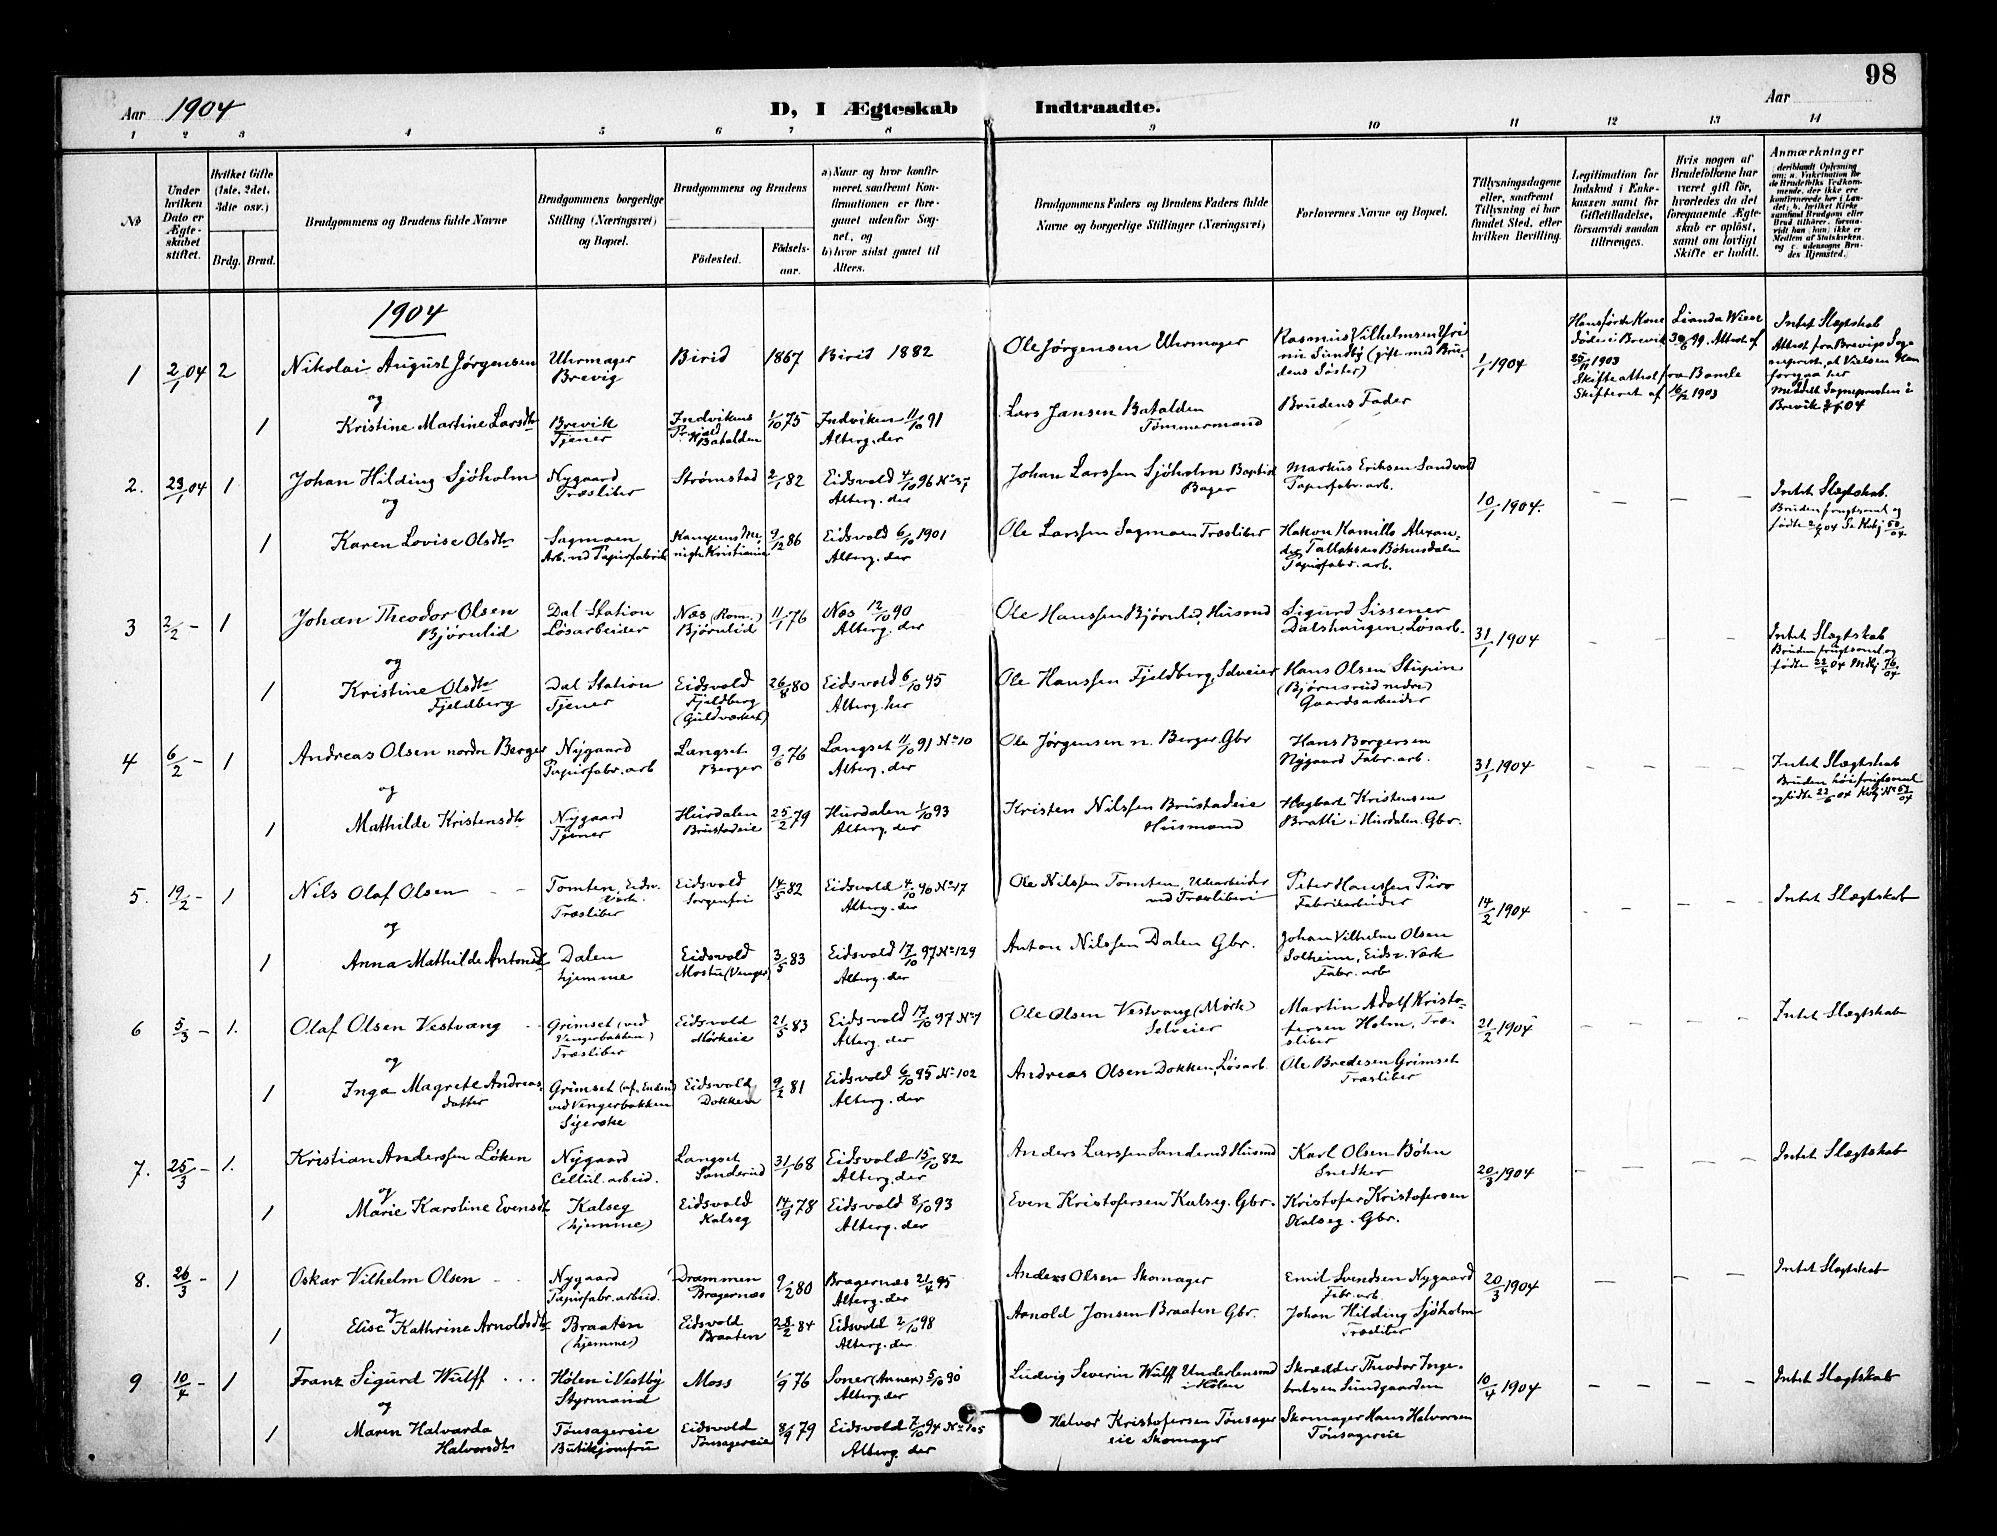 98
Aar 1904 D, I Ægteskab Indtraadte. Aar
1 2 3 4 5 6 7 8 9 10 11 12 13 14
No
Under hvilken Dato er Ægteskabet stiftet.
Hvilket Gifte (1ste, 2det, 3die osv.)
Brdg. Brud.
Brudgommens og Brudens fulde Navne
Brudgommens borgerlige Stilling (Næringsvei) og Bopæl.
Brudgommens og Brudens
Fødested. Fødselsaar.
a) Naar og hvor konfirmeret, saafremt Konfirmationen er foregaaet udenfor Sognet, og
b) hvor sidst gaaet til Alters.
Brudgommens Faders og Brudens Faders fulde Navne og borgerlige Stillinger (Næringsvei)
Forlovernes Navne og Bopæl.
Tillysningsdagene eller, saafremt Tillysning ei har fundet Sted, efter hvilken Bevilling.
Legitimation for Indskud i Enkekassen samt for Giftetilladelse, forsaavidt saadan tiltrænges.
Hvis nogen af Brudefolkene har været gift før, hvorledes da det foregaaende Ægteskab er opløst, samt om lovligt Skifte er holdt.
Anmærkninger
1904
1 2/1 04 2 Nikolai August Jørgensen Uhrmager Brevig Birid 1867 Birid 1882 Ole Jørgensen Uhrmager Rasmus Vilhelmsen Sundby (gift med Brudens Søster) 1/1 1904 Intet Slægtskab
og
1 Kristine Martine Larsdtr Brevik Tjener Indviken Batalden 1/10 75 Indviken 11/10 91 Alterg. der Lars Jansen Batalden Tømmermand Brudens Fader
2. 23/1 04 1 Johan Hilding Sjøholm Nygaard Træsliber Strømstad 2/1 82 Eidsvold 4/10 96 Alterg. der Johan Larssen Sjøholm Baptist Bager Markus Eriksen Sandvold Papirfabr. arb. 10/1 1904. Intet Slægtskab. Bruden frugtsommel og
og
1 Karen Lovise Olsdtr Sagmoen Arb. ved Papirfabrik Kampens Menigh. Kristiania 9/12 86 Eidsvold 6/10 1901 Alterg. der Ole Larssen Sagmoen Træsliber Hakon Kamillo Alexander Tallaksen Bøhnsdalen Papirfabr. arb.
3 2/2 – 1 Johan Theodor Olsen Bjørnlid Dal Station Løsarbeider Næs (Rom.) Bjørnlid 11/1 76 Næs 12/10 90 Alterg. der Ole Hanssen Bjørnlid, Husmd Sigurd Sissener Dalshaugen, Løsarb. 31/1 1904 Intet Slægtskab
og
1 Kristine Olsdtr Fjeldberg Dal Station Tjener Eidsvold Fjeldberg (Guldværket) 26/8 80 Eidsvold 6/10 95 Alterg. her Ole Hanssen Fjeldberg, Selveier Hans Olsen Stupin (Bjørnsrud nedre) Gaardsarbeider
4 6/2 – 1 Andreas Olsen nordre Berger Nygaard Papirfabr. arb Langset Berger 9/6 76 Langset 11/10 91 No 10 Alterg. der Ole Jørgensen n. Berger Gbr Hans Borgersen Nygaard Fabr. arb. 31/1 1904 Intet Slægtskab
og
1 Mathilde Kristensdtr Nygaard Tjener Hurdalen Brustadeie 25/2 79 Hurdalen 1/10 93 Alterg. der Kristen Nilssen Brustadeie Husmand Hagbart Kristensen Bratli i Hurdalen. Gbr.
5. 19/2 – 1 Nils Olaf Olsen Tomten, Eidsv. Værk. Træsliber Eidsvold Sorgenfri 14/5 82 Eidsvold 4/10 96 No 17 Alterg. der Ole Nilssen Tomten, Udearbeider ved Træsliberi Peter Hanssen Piro Fabrikarbeider 14/2 1904 Intet Slægtskab
og
1 Anna Mathilde Antonsdtr Dalen hjemme Eidsvold Mostu (Venger) 3/5 83 Eidsvold 17/10 97 No 129 Alterg. der Anton Nilssen Dalen Gbr. Johan Vilhelm Olsen Solheim, Eidsv. Værk Fabr. arb
6 5/3 – 1. Olaf Olsen Vestvang Grimset (ved Vengerbakken) Træsliber Eidsvold Mørkeie 21/5 83 Eidsvold 17/10 97 Alterg. der Ole Olsen Vestvang (Mørk) Selveier Martin Adolf Kristofersen Holm, Træsliber 21/2 1904 Intet Slægtskab
og
1 Inga Magrete Andreasdatter Grimset ved Vengerbakken Sÿerske Eidsvold Dokken 9/2 81 Eidsvold 6/10 95 No 102 Alterg. der Andreas Olsen Dokken, Løsarb. Ole Bredesen Grimset Træsliber
7. 25/3 – 1. Kristian Anderssen Løken Nygaard Cellul. arbeid. Langset Sanderud 31/1 68 Eidsvold 15/10 82 Alterg. der Anders Larssen Sanderud Husmd Karl Olsen Bøhn Snedker 20/3 1904 Intet Slægtskab
og
1 Marie Karoline Evensdtr Kalseg (hjemme) Eidsvold Kalseg 14/9 78 Eidsvold 8/10 93 Alterg. der Even Kristofersen Kalseg. Gbr. Kristofer Kristofersen Kalseg. Gbr.
8. 26/3 – 1 Oskar Vilhelm Olsen Nygaard Papirfabr. arbeid. Drammen Bragernæs 9/2 80 Bragernæs 21/4 95 Alterg. der Anders Olsen Skomager Emil Svendsen Nygaard Fabr. arb. 20/3 1904 Intet Slægtskab
og
1 Elise Kathrine Arnoldsdtr Braaten (hjemme) Eidsvold Braaten 28/2 84 Eidsvold 2/10 98 Alterg. der Arnold Jonsen Braaten Gbr. Johan Hilding Sjøholm Træsliber
9 10/4 – 1 Franz Sigurd Wulff Hølen i Vestby Styrmand Moss 1/9 76 Soner (Annex) 5/10 90 Alterg. der Ludvig Severin Wulff Underlensmd i Hølen Skrædder Theodor Ingebretsen Sundgaarden 10/4 1904 Intet Slægtskab
og
1 Maren Halvarda Halvorsdtr Tønsagereie Butikjomfru Eidsvold Tønsagereie 8/9 79 Eidsvold 7/10 94 Alterg. der Halvor Kristofersen Tønsagereie Skomager Skomager Hans Halvorsen Tønsagereie